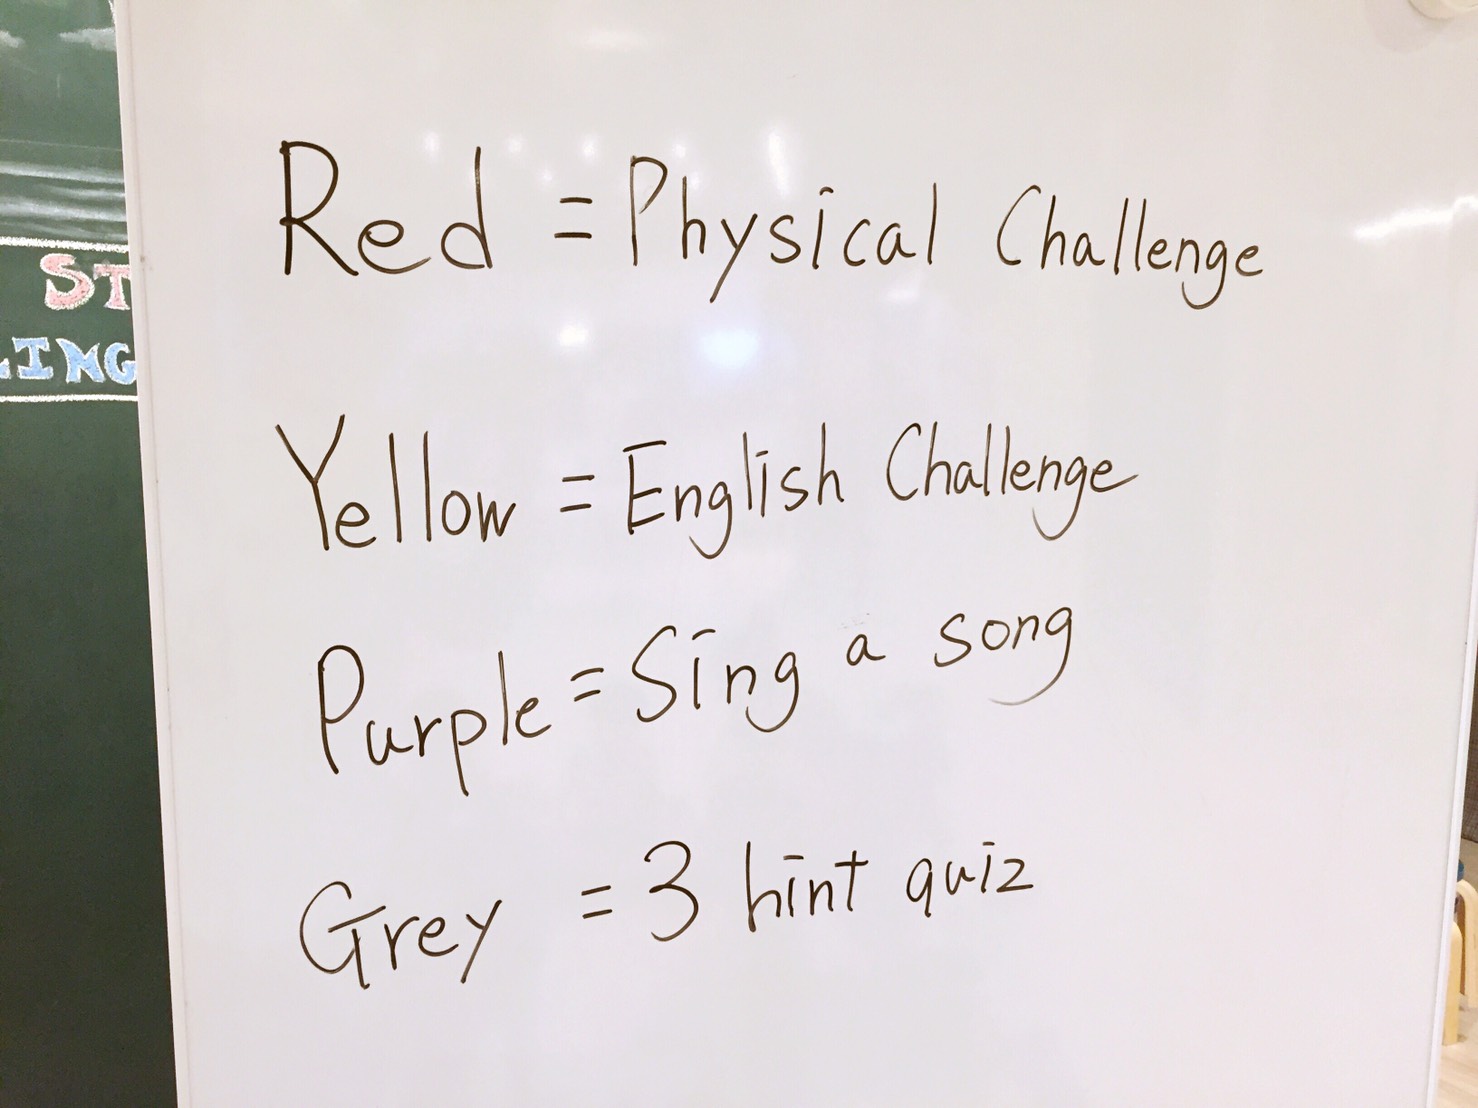 ST
LING
Red = Physical Challenge
Yellow = English Challenge
Purple = Sing a song
Grey = 3 hint quiz